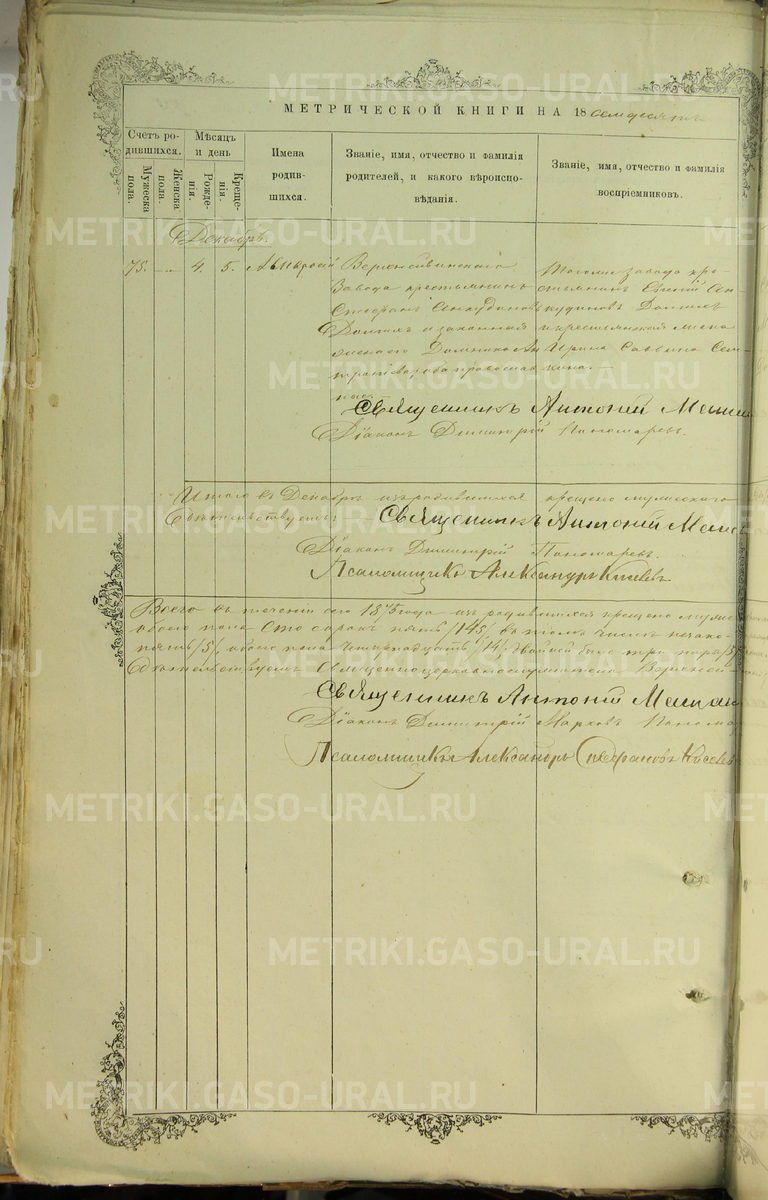 МЕТРИЧЕСКОЙ КНИГИ НА 18 семдесятъ
Счетъ ро-
дившихся.
Мужеска
пола.
Женска
пола.
Мѣсяцъ
и день
Рожде-
нія.
Креще-
нія.
Имена
родив-
шихся.
Званіе, имя, отчество и фамилія
родителей, и какого вѣроиспо-
вѣданія.
Званіе, имя, отчество и фамилія
воспріемниковъ.
Декабрь.
75. 4. 5. Амвросій
Верхнейвинскаго
завода крестьянинъ
Стефанъ
Долгихъ и законная
православ
Тогоже завода кре-
стьянинъ Евгеній
Долгихъ
Ирина Саввина
Священникъ Антоній
Діаконъ Димитрій Пономаревъ.
Итого въ Декабрѣ изъ родившихся крещено мужескаго
Священникъ Антоній
Діаконъ Димитрій Пономаревъ.
Псаломщикъ Александръ Киселевъ
Всего въ теченіи сего 1875 года изъ родившихся крещено
обоего пола сто сорокъ пять /145/, въ томъ числѣ незако-
пять /5/, обоего пола четырнадцать /14/, двойней было три пары /3/
Священноцерковнослужители Верхней-
Священникъ Антоній
Діаконъ Димитрій Марковъ Понома
Псаломщикъ Александръ Стефановъ Киселевъ
METRIKI.GASO-URAL.RU